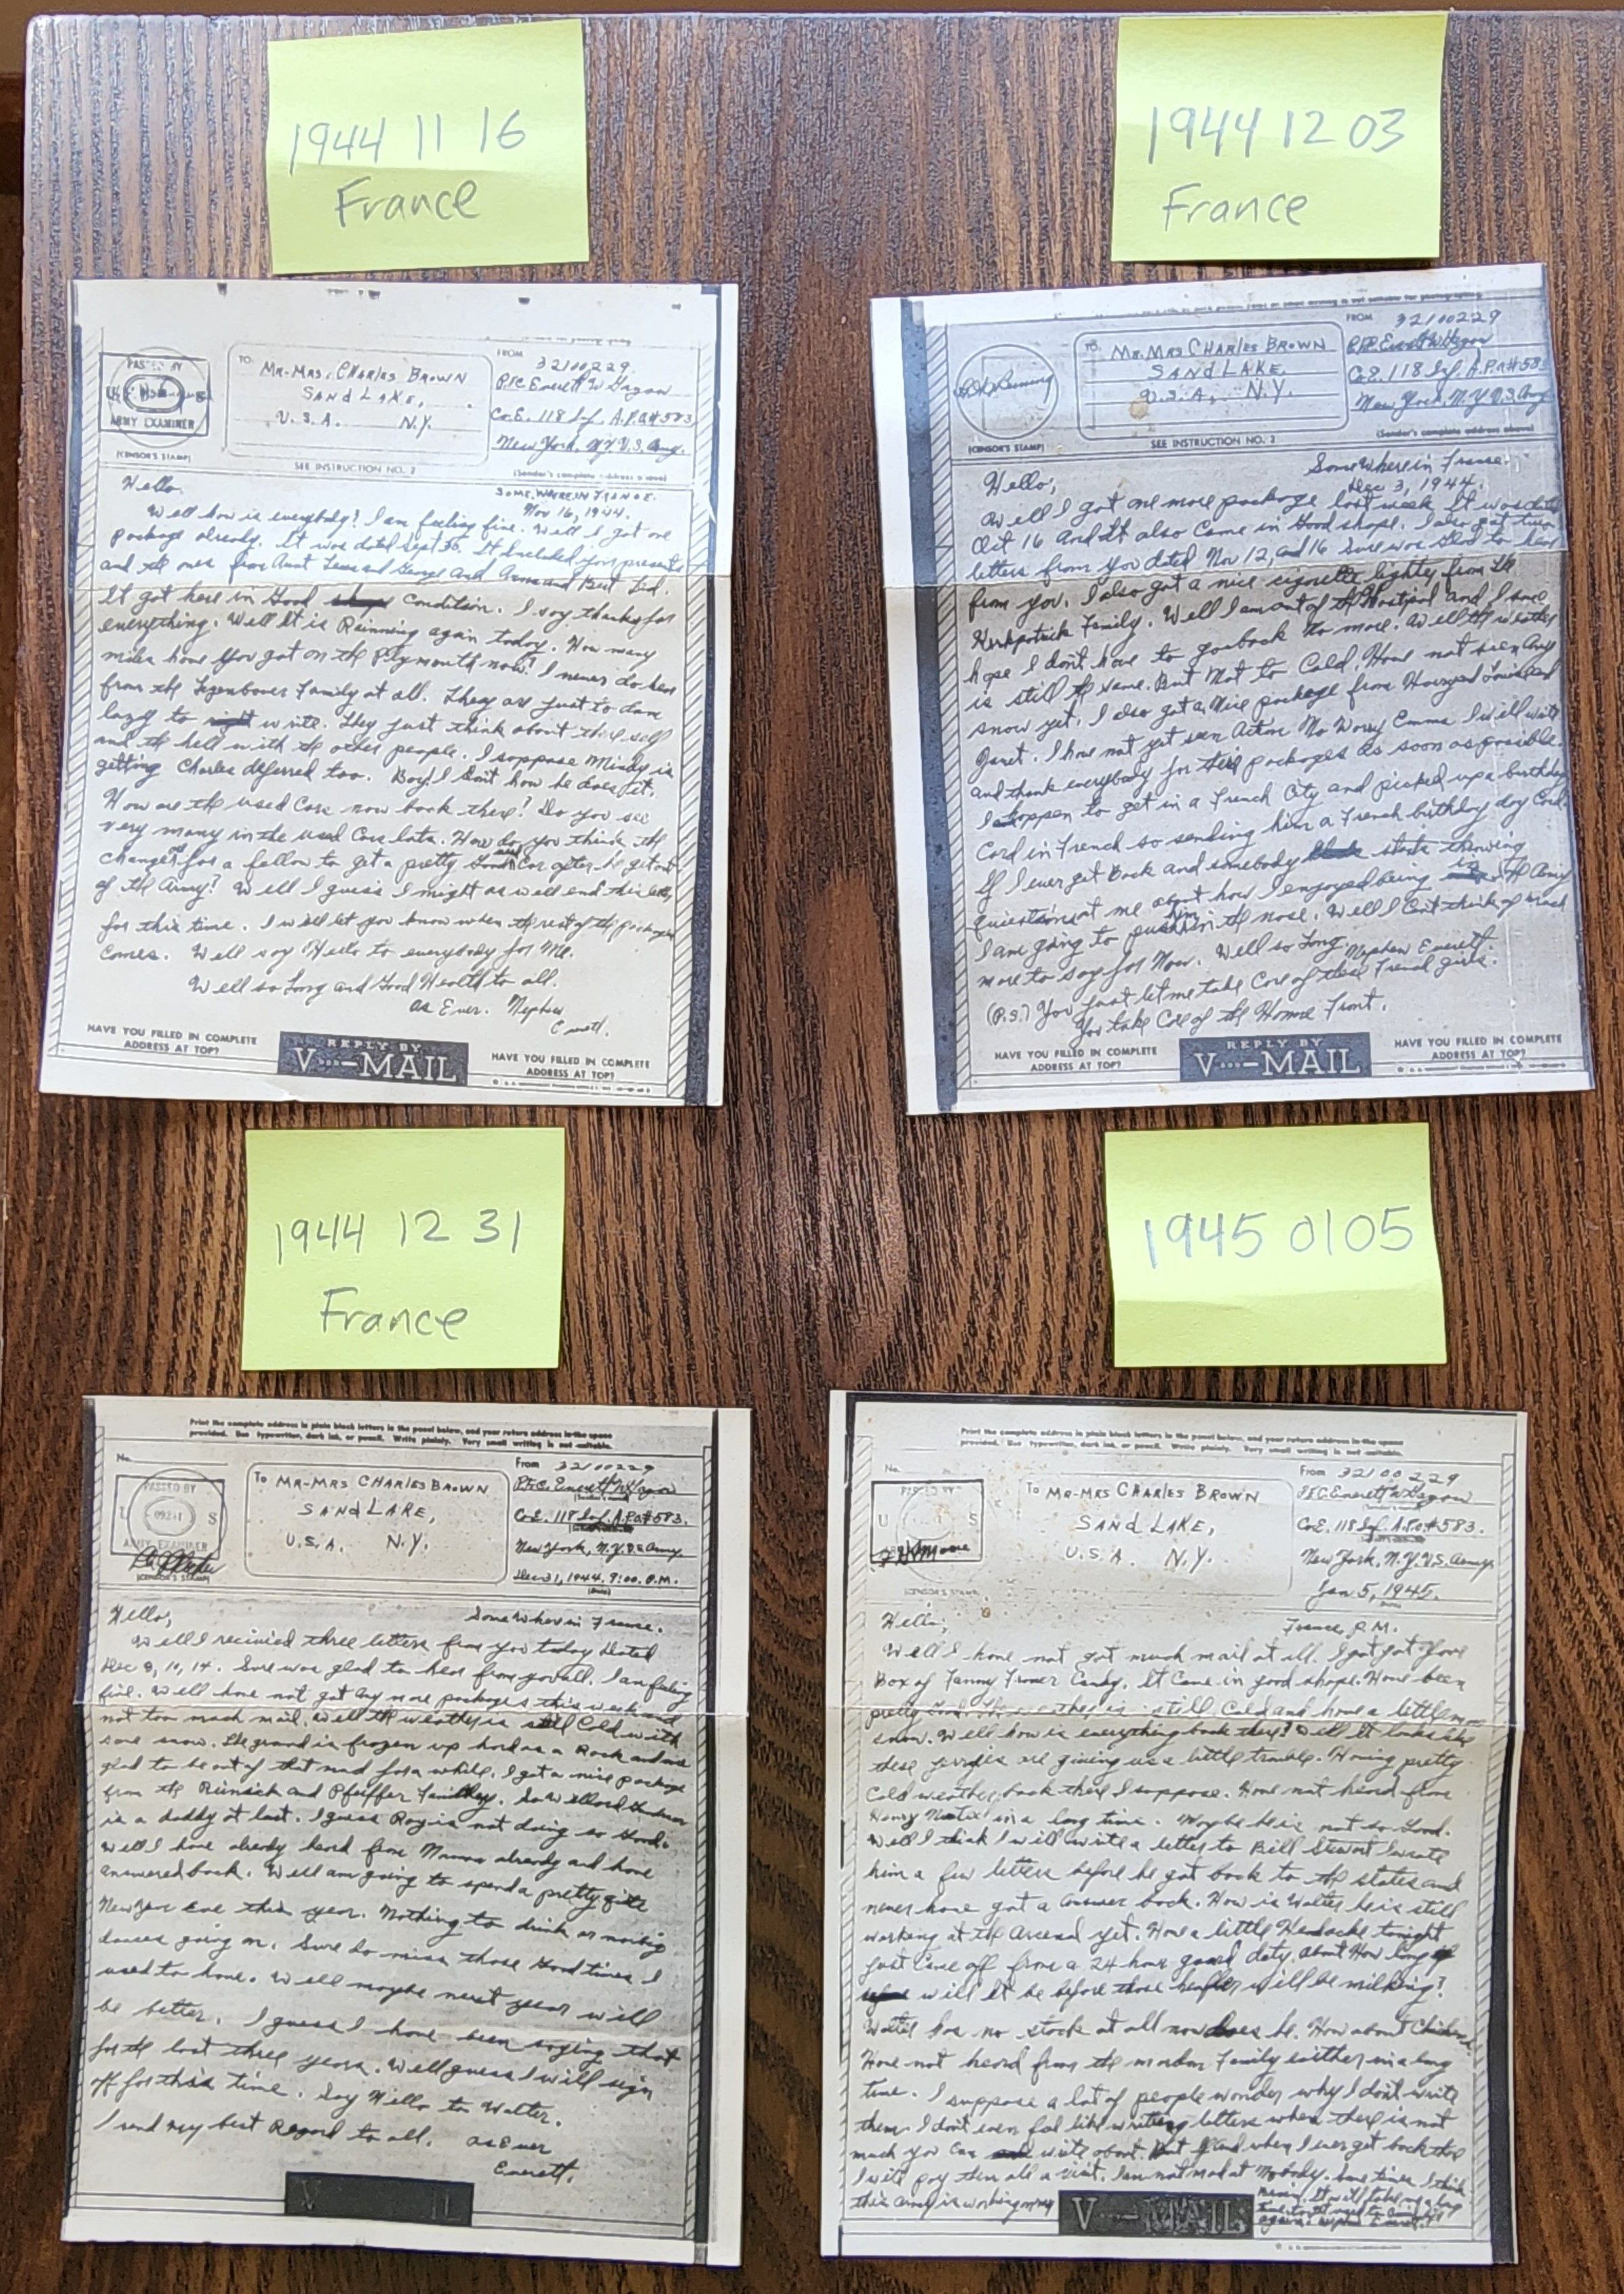 1944 11 16
France
1944 12 03
France
PASSED BY
U S
ARMY EXAMINER
(CENSOR'S STAMP)
TO:
MR-MRS. CHARLES BROWN
SAND LAKE,
U.S.A. N.Y.
SEE INSTRUCTION NO. 2
FROM
32100229.
P.F.C. Everett W
Co.E. 118 Inf. A.P.O.#583
New York, N.Y. U.S. Army.
(Sender's complete address above)
SOMEWHERE IN FRANCE.
Nov 16, 1944.
Hello.
Well how is everybody? I am feeling fine. Well I got one
package already. It was dated Sept 30. It Included your presents
and the ones from Aunt and George and and Bert
It got here in Good Condition. I say thanks for
everything. Well It is Rainning again today. How many
miles have you got on the Plymouth now? I never do hear
from the Family at all. They are just to dam
lazy to write. They just think about their self
and the hell with the other people. I suppose is
getting Charles deferred too. Boy! I don't how he does it.
How are the used Cars now back there? Do you see
very many in the used Cars lots. How do you think the
changes for a fellow to get a pretty Good Car after he get out
of the Army? Well I guess I might as well end this letter
for this time. I will let you know when the rest of the packages
Comes. Well say Hello to everybody for Me.
Well so Long and Good Health to all.
As Ever. Nephew
Everett.
HAVE YOU FILLED IN COMPLETE
ADDRESS AT TOP?
REPLY BY
V···—MAIL
HAVE YOU FILLED IN COMPLETE
ADDRESS AT TOP?
(CENSOR'S STAMP)
TO:
MR. MRS CHARLES BROWN
SAND LAKE
U.S.A., N.Y.
SEE INSTRUCTION NO. 2
FROM
32100229
P.F.C. Everett W
Co.E. 118 Inf. A.P.O.#583
New York, N.Y. U.S. Army
(Sender's complete address above)
Somewhere in France.
Dec 3, 1944.
Hello;
Well I got one more package last week It was dated
Oct 16 And It also Came in Good shape. I also got two
letters from you dated Nov 12, and 16 Sure was Glad to hear
from you. I also got a nice cigarette lighter from the
Kirkpatrick Family. Well I am out of the Hostipal and I sure
hope I don't have to go back no more. Well the weather
is still the same. But Not to Cold. Have not seen any
snow yet. I also got a Nice package from Howard Louise and
Janet. I have not yet seen Action No Worry Emma I will write
and thank everybody for their packages as soon as possible.
I happen to get in a French City and picked up a birthday
Card in French so sending him a French birthday day Card.
If I ever get Back and somebody starts throwing
quiestions at me about how I engoyed being in the Army
I am going to push him in the nose. Well I Cant think of much
more to say for Now. Well so Long Nephew Everett.
(P.S.) You just let me take Care of these French girls.
You take Care of the Homme Front.
HAVE YOU FILLED IN COMPLETE
ADDRESS AT TOP?
REPLY BY
V···—MAIL
HAVE YOU FILLED IN COMPLETE
ADDRESS AT TOP?
1944 12 31
France
1945 01 05
Print the complete address in plain block letters in the panel below, and your return address in the space
provided. Use typewriter, dark ink, or pencil. Write plainly. Very small writing is not suitable.
No.
PASSED BY
U S
ARMY EXAMINER
(CENSOR'S STAMP)
To
MR-MRS CHARLES BROWN
SAND LAKE,
U.S.A. N.Y.
From
32100229
P.F.C. Everett W
Co.E. 118 Inf. A.P.O.#583.
New York, N.Y. U.S. Army.
Dec 31, 1944. 9:00. P.M.
(Date)
Hello;
Somewhere in France.
Well I recivied three letters from you today Dated
Dec 8, 10, 14. Sure was glad to hear from you all. I am feeling
fine. Well have not got any more packages this week and
not too much mail. Well the weather is still Cold with
some snow. The ground is frozen up hard as a Rock and am
glad to be out of that mud for a while. I got a nice package
from the and Pfeiffer Familey. So Willard
is a daddy at last. I guess Roy is not doing so Good.
Well I have already heard from already and have
answered back. Well am going to spend a pretty quite
New Year Eve this year. Nothing to drink or
dances going on. Sure do miss those Good times I
used to have. Well maybe next year will
be better. I guess I have been saying that
for the last three years. Well guess I will sign
off for this time. Say Hello to Walter.
I send my best Regard to all. As Ever
Everett.
V
Print the complete address in plain block letters in the panel below, and your return address in the space
provided. Use typewriter, dark ink, or pencil. Write plainly. Very small writing is not suitable.
No.
PASSED BY
U S
(CENSOR'S STAMP)
To
MR-MRS CHARLES BROWN
SAND LAKE,
U.S.A. N.Y.
From
32100229
P.F.C. Everett W
Co.E. 118 Inf. A.P.O.#583.
New York, N.Y. U.S. Army.
Jan 5, 1945.
Hello;
France, P.M.
Well I have not got much mail at all. I got your
Box of Fanny Farmer Candy. It Came in good shape. Have been
pretty Good. The weather is still Cold and have a little more
snow. Well how is everything back there? Well It looks like
these jerries are giving us a little trouble. Having pretty
Cold weather back there I suppose. Have not heard from
Henry in a long time. Maybe he is not so Good.
Well I think I will write a letter to Bill Stewart I wrote
him a few letters before he got back to the states and
never have got a answer back. How is Walter he is still
working at the Arsenal yet. Have a little Headache tonight
just Came off from a 24 hour guard duty. About How long
will it be before those heifers will be milking?
Walter has no stock at all now does he. How about Chickens.
Have not heard from the Family either in a long
time. I suppose a lot of people wonder why I don't write
them. I don't even feel like writing letters when there is not
much you Can write about. But when I ever get back there
I will pay them all a visit. I am not mad at Nobody. Some times I think
this army is working on my
V···—MAIL
nerves. It will take me a long
time to get used to
again. Nephew Everett.